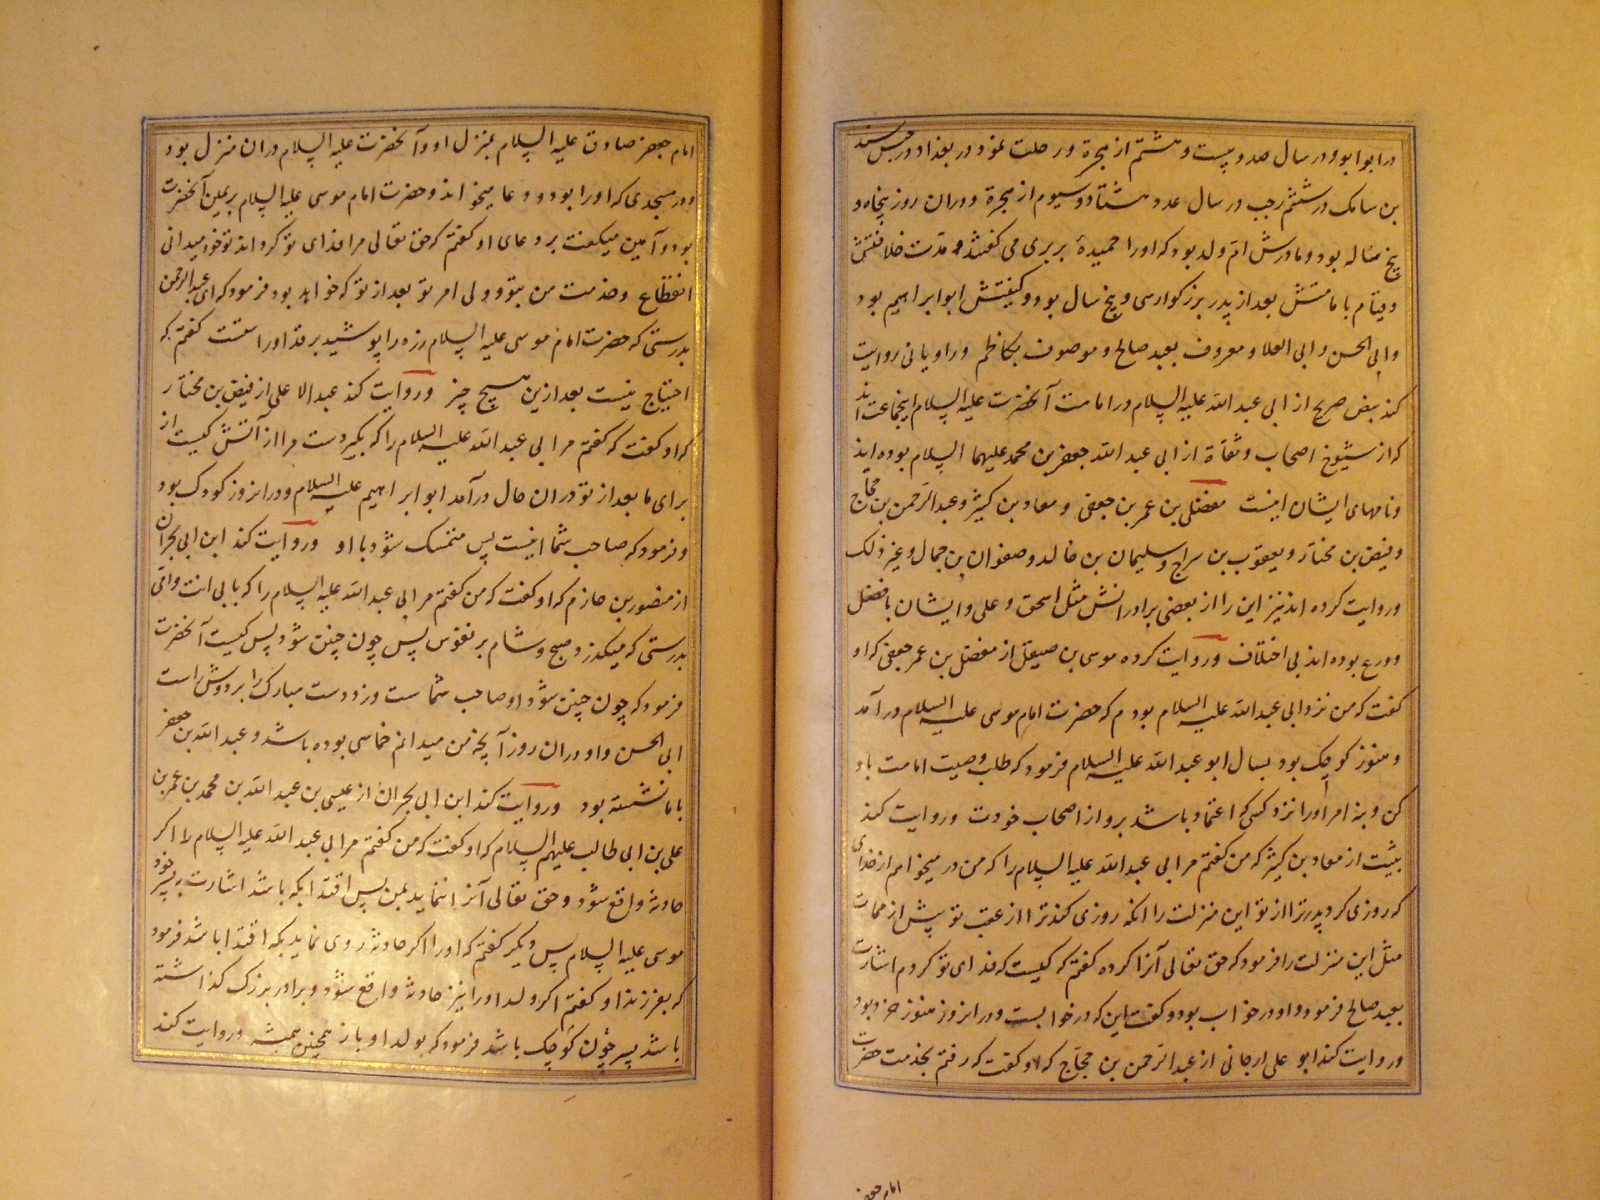 در ابوا بود در سال صد و بیست و هشتم از هجرة و رحلت نمود در بغداد در حبس سند
بن سامک در ششم رجب در سال عدد هشتاد و سیوم از هجرة و در آن روز پنجاه و
پنج ساله بود و مادرش ام ولد بود که او را حمیدهٔ بربری می گفتند و مدت خلافتش
و قیام بامامتش بعد از پدر بزرگوار سی و پنج سال بود و کنیتش ابو ابراهیم بود
و ابی الحسن و ابی العلا و معروف بعبد صالح و موصوف بکاظم و راویانی روایت
کنند بنص صریح از ابی عبد الله علیه السلام در امامت آنحضرت علیه السلام اینجماعت اند
که از شیوخ اصحاب و ثقاة از ابی عبد الله جعفر بن محمد علیهما السلام بوده اند
و نامهای ایشان اینست مفضل بن عمر بن جعفی و معاد بن کثیر و عبد الرحمن بن حجاج
و فیض بن مختار و یعقوب بن سراج و سلیمان بن خالد و صفوان بن جمال و غیر ذلک
و روایت کرده اند نیز این را از بعضی برادرانش مثل اسحق و علی و ایشان با فضل
و ورع بوده اند بی اختلاف و روایت کرده موسی بن صیقل از مفضل بن عمر جعفی که او
گفت که من نزد ابی عبد الله علیه السلام بودم که حضرت امام موسی علیه السلام در آمد
و هنوز کوچک بود بسال ابو عبد الله علیه السلام فرمود که طلب وصیت امامت باو
کن و بنه امر او را نزد کسی که اعتماد باشد برو از اصحاب خودت و روایت کند
ثبیت از معاد بن کثیر که من گفتم مر ابی عبد الله علیه السلام را که من در میخواهم از خدای
که روزی کرد پدر ترا از تو این منزلت را انکه روزی کند ترا از عقب تو پیش از ممات
مثل این منزلت را فرمود که حق تعالی آنرا کرده گفتم که کیست که فدای تو کردم اشارت
بعبد صالح فرمود و او در خواب بود و گفت این که در خوابست و در انروز هنوز خرد بود
و روایت کند ابو علی ارجانی از عبد الرحمن بن حجاج که او گفت که رفتم بخدمت حضرت
امام جعفر
امام جعفر صادق علیه السلام بمنزل او و آنحضرت علیه السلام در ان منزل بود
و در مسجدی که او را بود و دعا میخواند و حضرت امام موسی علیه السلام بر یمین آنحضرت
بود و آمین میگفت بر دعای او گفتم که حق تعالی مرا فدای تو گرداند تو خود میدانی
انقطاع و خدمت من بتو و ولی امر تو بعد از تو که خواهد بود فرمود که ای عبد الرحمن
بدرستی که حضرت امام موسی علیه السلام زره را پوشید بر قد او راستست گفتم که
احتیاج نیست بعد ازین هیچ چیز و روایت کند عبد الاعلی از فیض بن مختار
که او گفت که گفتم مر ابی عبد الله علیه السلام را که بگیر دست مرا از آتش کیست از
برای ما بعد از تو در ان حال در آمد ابو ابراهیم علیه السلام و در انروز کودک بود
و فرمود که صاحب شما اینست پس متمسک شوید با او و روایت کند ابن ابی نجران
از منصور بن حازم که او گفت که من گفتم مر ابی عبد الله علیه السلام را که بابی انت و امی
بدرستی که میگذرد صبح و شام بر نفوس پس چون چنین شود پس کیست آنحضرت
فرمود که چون چنین شود او صاحب شماست و زد دست مبارک را بر دوش راست
ابی الحسن و او در ان روز آنچه من میدانم خماسی بوده باشد و عبد الله بن جعفر
با ما نشسته بود و روایت کند ابن ابی نجران از عیسی بن عبد الله بن محمد بن عمر بن
علی بن ابی طالب علیهم السلام که او گفت که من گفتم مر ابی عبد الله علیه السلام را اگر
حادثه واقع شود و حق تعالی آنرا ننماید بمن پس اقتدا بکه باشد اشارت به پسر خود
موسی علیه السلام پس دیگر گفتم که او را اگر حادثه روی نماید بکه اقتدا باشد فرمود
که بفرزند او گفتم اگر ولد او را نیز حادثه واقع شود و برادر بزرک گذاشته
باشد پسر چون کوچک باشد فرمود که بولد او باز همچنین همیشه و روایت کند